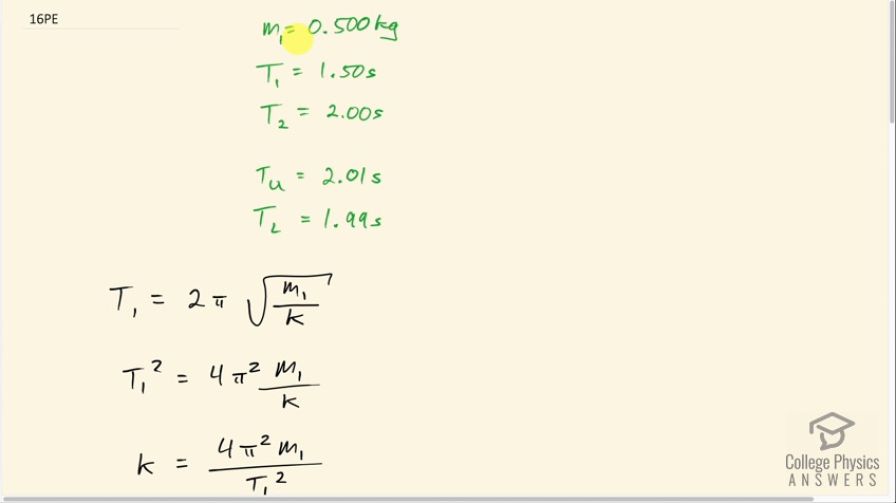 16PE
m₁ = 0.500 kg
T₁ = 1.50 s
T₂ = 2.00 s
Tu = 2.01 s
TL = 1.99 s
T₁ = 2π √(m₁/k)
T₁² = 4π² m₁/k
k = 4π² m₁/T₁²
College Physics
ANSWERS